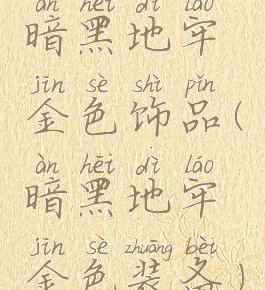 àn hēi dì láo
暗黑地牢
jīn sè shì pǐn
金色饰品(
àn hēi dì láo
暗黑地牢
jīn sè zhuāng bèi
金色装备)